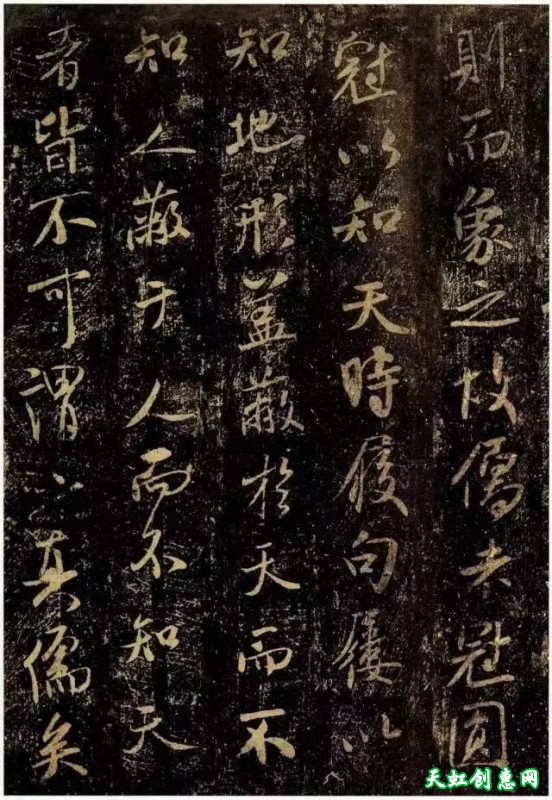 則而象之故儒者冠圓
冠以知天時履句屨以
知地形蓋蔽於天而不
知人蔽于人而不知天
者皆不可謂之真儒矣
天虹创惠网